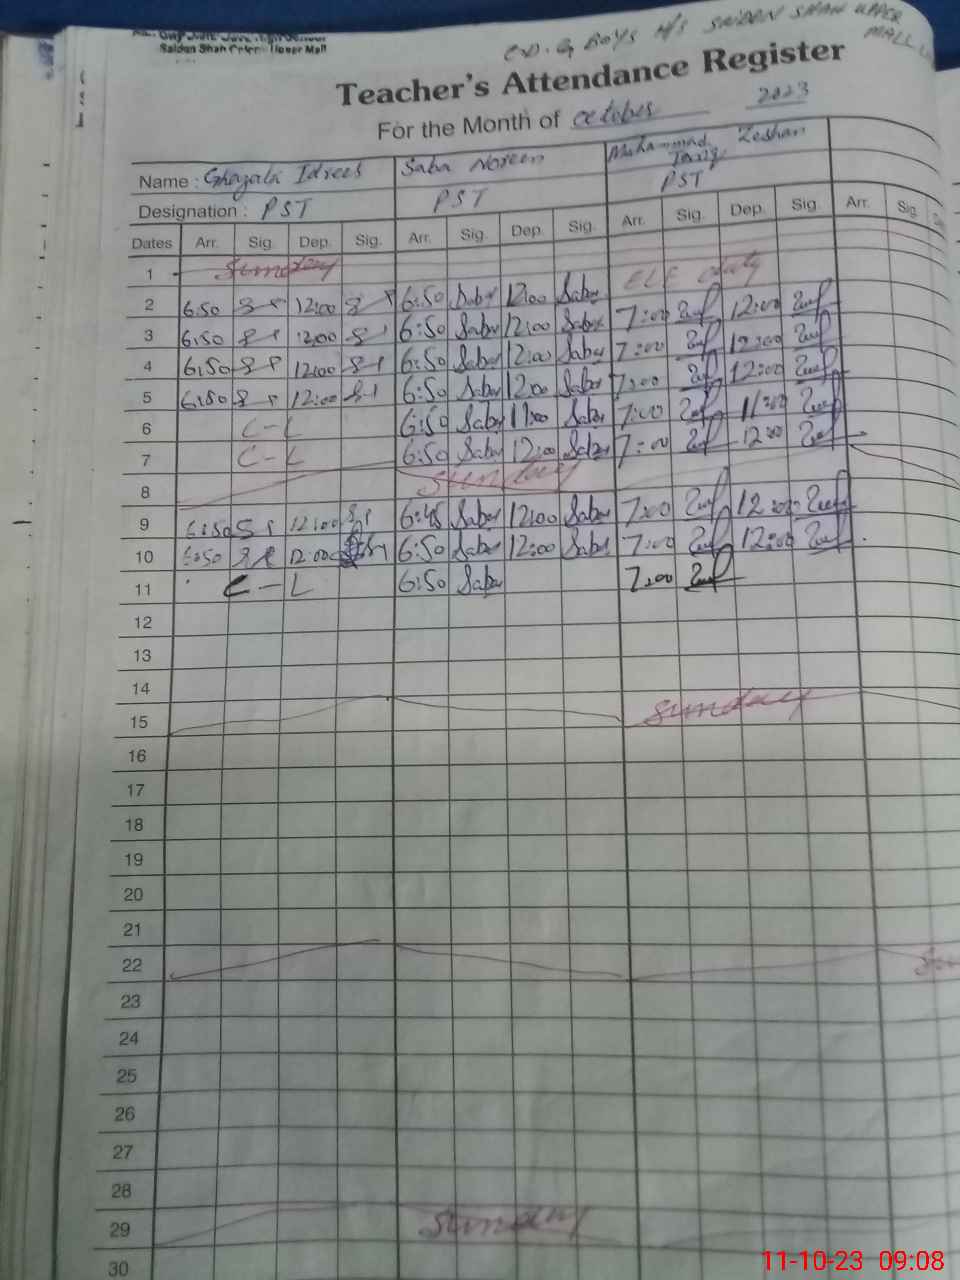 Saidan Shah
G BOYS H/S SAIDAN SHAH UPPER
MALL
Teacher's Attendance Register
For the Month of October 2023
Name : Ghazala Idrees Saba Noreen Muhammad Zeshan
Tariq
Designation : PST PST PST
Dates Arr. Sig. Dep. Sig. Arr. Sig. Dep. Sig. Arr. Sig. Dep. Sig. Arr. Sig.
1 Sunday
2 6:50 12:00 6:50 Saba 12:00 Saba 7:00 12:00
3 6:50 12:00 6:50 Saba 12:00 Saba 7:00 12:00
4 6:50 12:00 6:50 Saba 12:00 Saba 7:00 12:00
5 6:50 12:00 6:50 Saba 12:00 Saba 7:00 11:00
6 C-L 6:50 Saba 11:00 Saba 7:00 12:00
7 C-L 6:50 Saba 12:00 Saba
8 Sunday
9 6:50 12:00 6:45 Saba 12:00 Saba 7:00 12:00
10 6:50 12:00 6:50 Saba 12:00 Saba 7:00 12:00
11 C-L 6:50 Saba 7:00
12
13
14
15 Sunday
16
17
18
19
20
21
22
23
24
25
26
27
28
29 Sunday
30
11-10-23 09:08